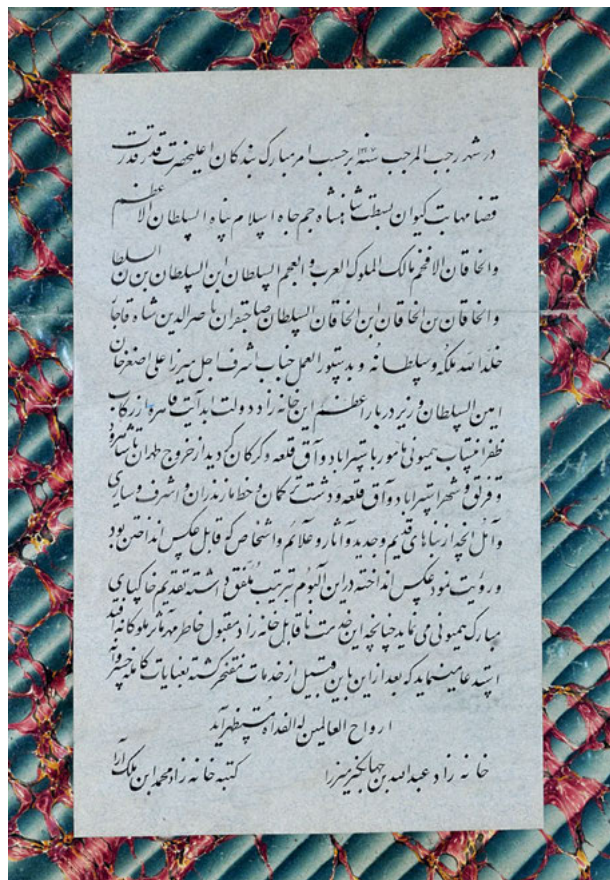 در شهر رجب المرجب سنه برحسب امر مبارک بندگان اعلیحضرت قدر قدرت
قضا مهابت کیوان بسطت شاهنشاه جم جاه اسلام پناه السلطان الاعظم
والخاقان الافخم مالک الملوک العرب و العجم السلطان ابن السلطان بن السلطان
والخاقان بن الخاقان ابن الخاقان السلطان صاحبقران ناصرالدین شاه قاجار
خلد الله ملکه و سلطانه و بدستورالعمل جناب اشرف اجل میرزا علی اصغر خان
امین السلطان وزیر دربار اعظم این خانه زاد دولت ابد آیت قاهره از رکاب
ظفر انتساب همیونی مامور باستراباد و آق قلعه و کرکان کردید از خروج طهران تا شاهرود
و قزلق و شهر استراباد و آق قلعه و دشت ترکمان و خط مازندران و اشرف و ساری
و آمل آنچه از بناهای قدیم و جدید و آثار و علائم و اشخاص که قابل عکس انداختن بود
و رؤیت نمود عکس انداخته در این آلبوم بترتیب مُلفق داشته تقدیم خاکپای
مبارک همیونی می نماید چنانچه این خدمت ناقابل خانه زاد مقبول خاطر مهر مآثر ملوکانه افتد
استدعا مینماید که بعد از این باین قبیل از خدمات مفتخر کشته بعنایات کامله خسروانه
ارواح العالمین له الفداه مستظهر آید
خانه زاد عبدالله بن جهانگیر میرزا
کتبه خانه زاد محمد ابن ملک آرا